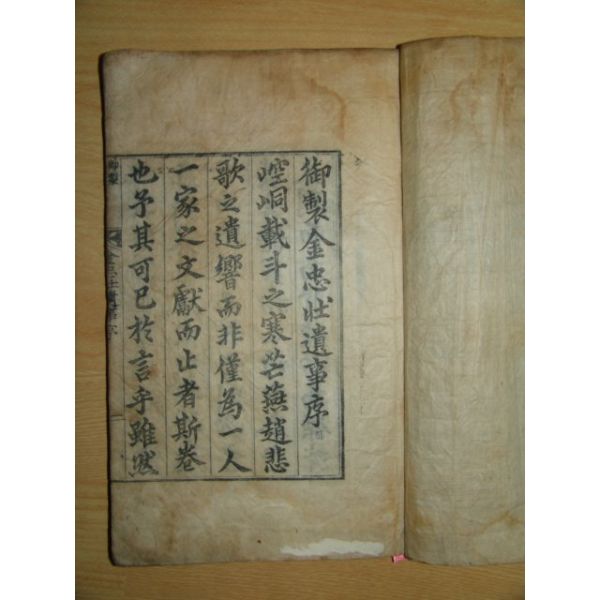 御製金忠壯遺事序
崆峒載斗之寒芒燕趙悲
歌之遺響而非僅為一人
一家之文獻而止者斯卷
也予其可已於言乎雖然